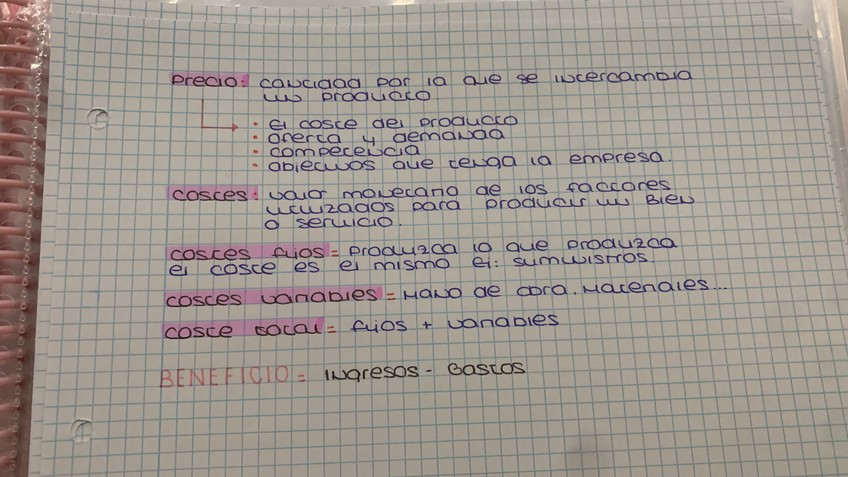 Precio: cantidad por la que se intercambia
un producto
· el coste del producto
· oferta y demanda
· competencia
· objetivos que tenga la empresa.
Costes: valor monetario de los factores
utilizados para producir un bien
o servicio.
Costes fijos = Produzca lo que produzca
el coste es el mismo ej: suministros.
Costes variables = Mano de obra. Materiales...
Coste total = fijos + variables
BENEFICIO = Ingresos - Gastos